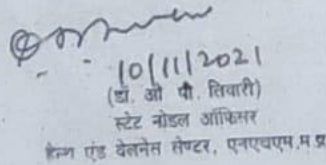 10/11/2021
(डॉ. ओ पी. तिवारी)
स्टेट नोडल ऑफिसर
हेल्थ एंड वेलनेस सेण्टर, एनएचएम,म.प्र